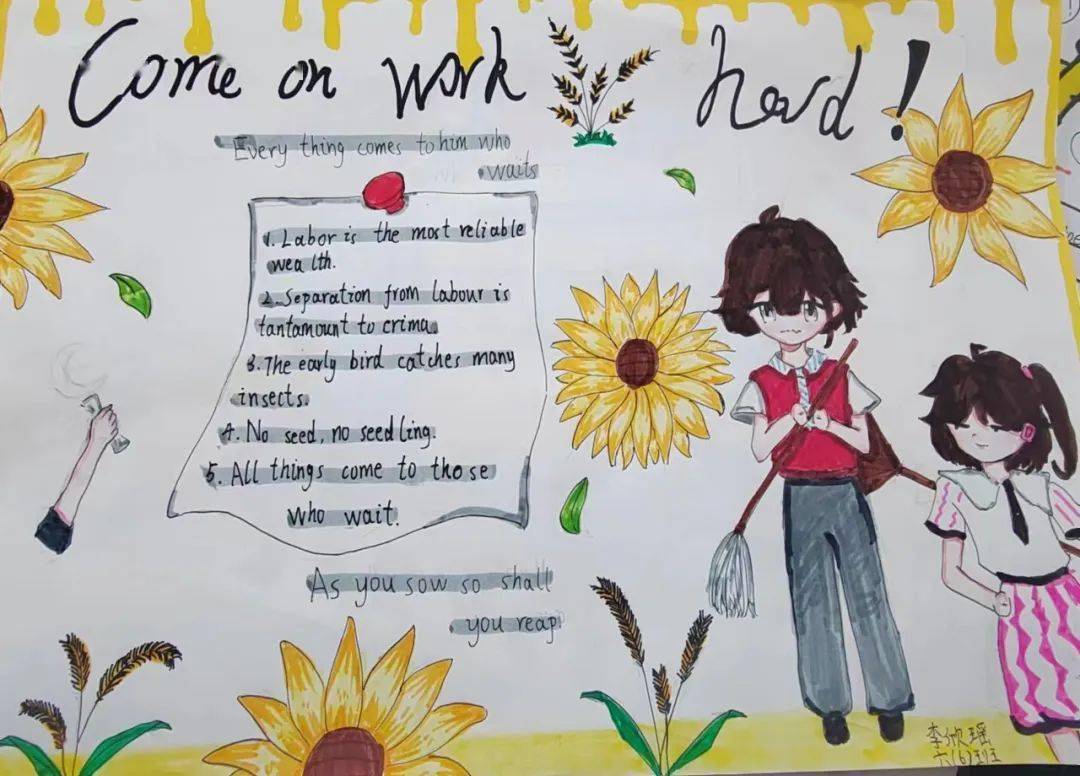 Come on work hard!
Every thing comes to him who
waits
1. Labor is the most reliable
wealth.
2. Separation from labour is
tantamount to crima.
3. The early bird catches many
insects.
4. No seed, no seedling.
5. All things come to those
who wait.
As you sow so shall
you reap
李欣瑶
六(6)班